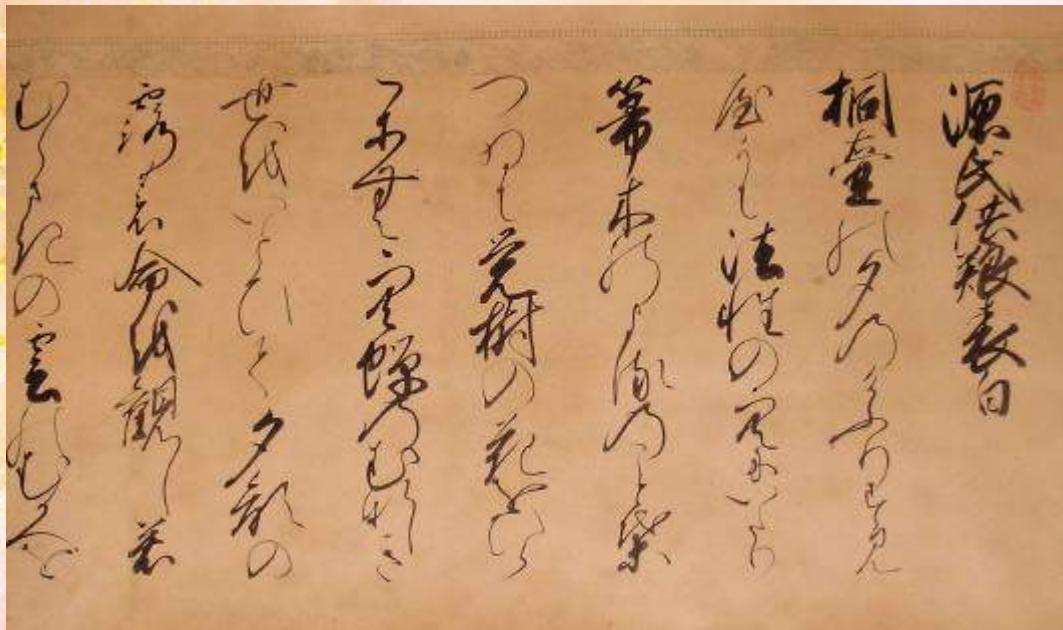 源氏供養表白
桐壺の夕のけふりすみ
やかに法性の空にいたり
箒木のよるのこと葉
つゐに覚樹の花をひら
空蝉のむなしき
世をいとひて夕顔の
露の命を観し若
むらさきの雲のむかへ